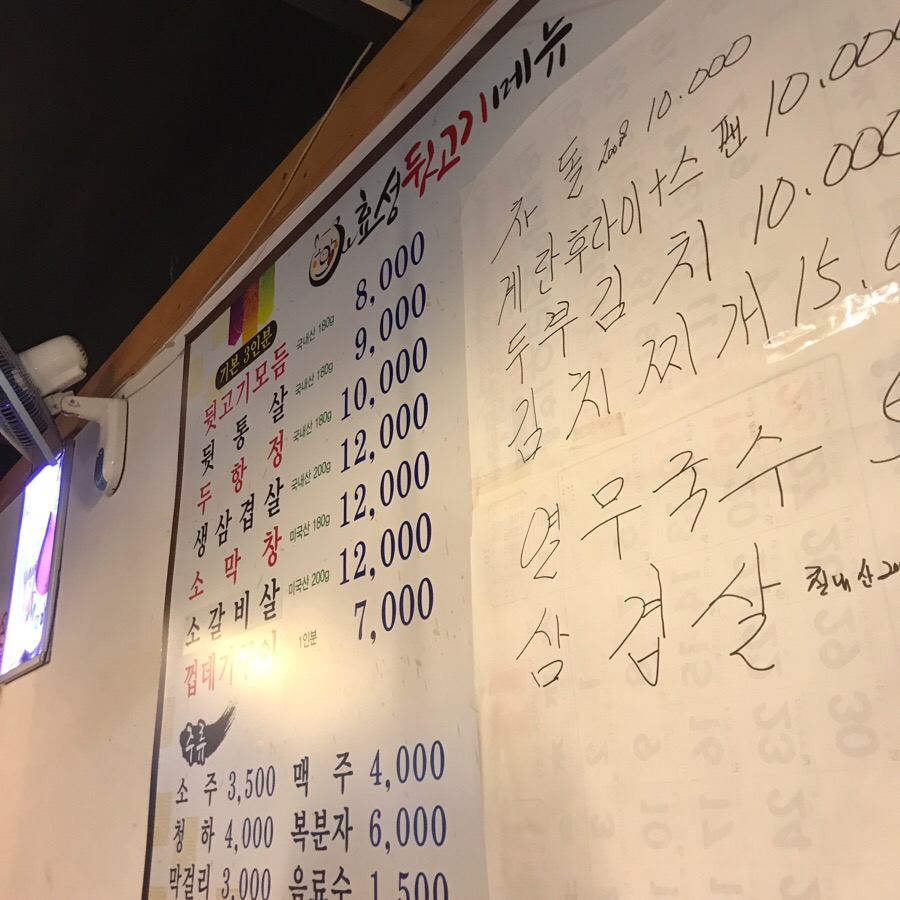 효성뒷고기메뉴
기본 3인분
뒷고기모듬 국내산 180g 8,000
뒷통살 국내산 180g 9,000
두항정 국내산 180g 10,000
생삼겹살 국내산 200g 12,000
소막창 미국산 180g 12,000
소갈비살 미국산 200g 12,000
껍데기 1인분 7,000
주류
소주 3,500 맥주 4,000
청하 4,000 복분자 6,000
막걸리 3,000 음료수 1,500
차돌 200g 10.000
계란후라이+스팸 10.000
두부김치 10.000
김치찌개 15.0
열무국수 5
삼겹살